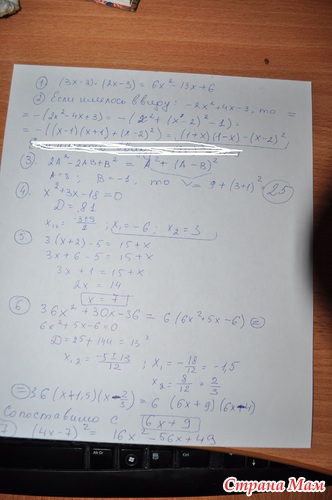 ① (3x-2)·(2x-3) = 6x²-13x+6
② Если имелось ввиду: -2x²+4x-3, то =
= -(2x²-4x+3) = -(x²+(x-2)²-1) =
= -((x-1)(x+1)+(x-2)²) = (1+x)(1-x)-(x-2)²
③ 2A²-2AB+B² = A²+(A-B)²
A=3; B=-1, то V= 9+(3+1)² = 25
④ x²+3x-18=0
D=81
x₁,₂ = -3±9/2 ; x₁=-6; x₂=3
⑤ 3(x+2)-5=15+x
3x+6-5=15+x
3x+1=15+x
2x=14
x=7
⑥ 36x²+30x-36 = 6(6x²+5x-6) ⊜
6x²+5x-6=0
D=25+144=13²
x₁,₂ = -5±13/12 ; x₁=-18/12=-1,5
x₂=8/12=2/3
⊜ 36(x+1,5)(x-2/3)=6 (6x+9)(6x-4)
Сопоставимо с 6x+9
7) (4x-7)² = 16x²-56x+49
Страна Мам